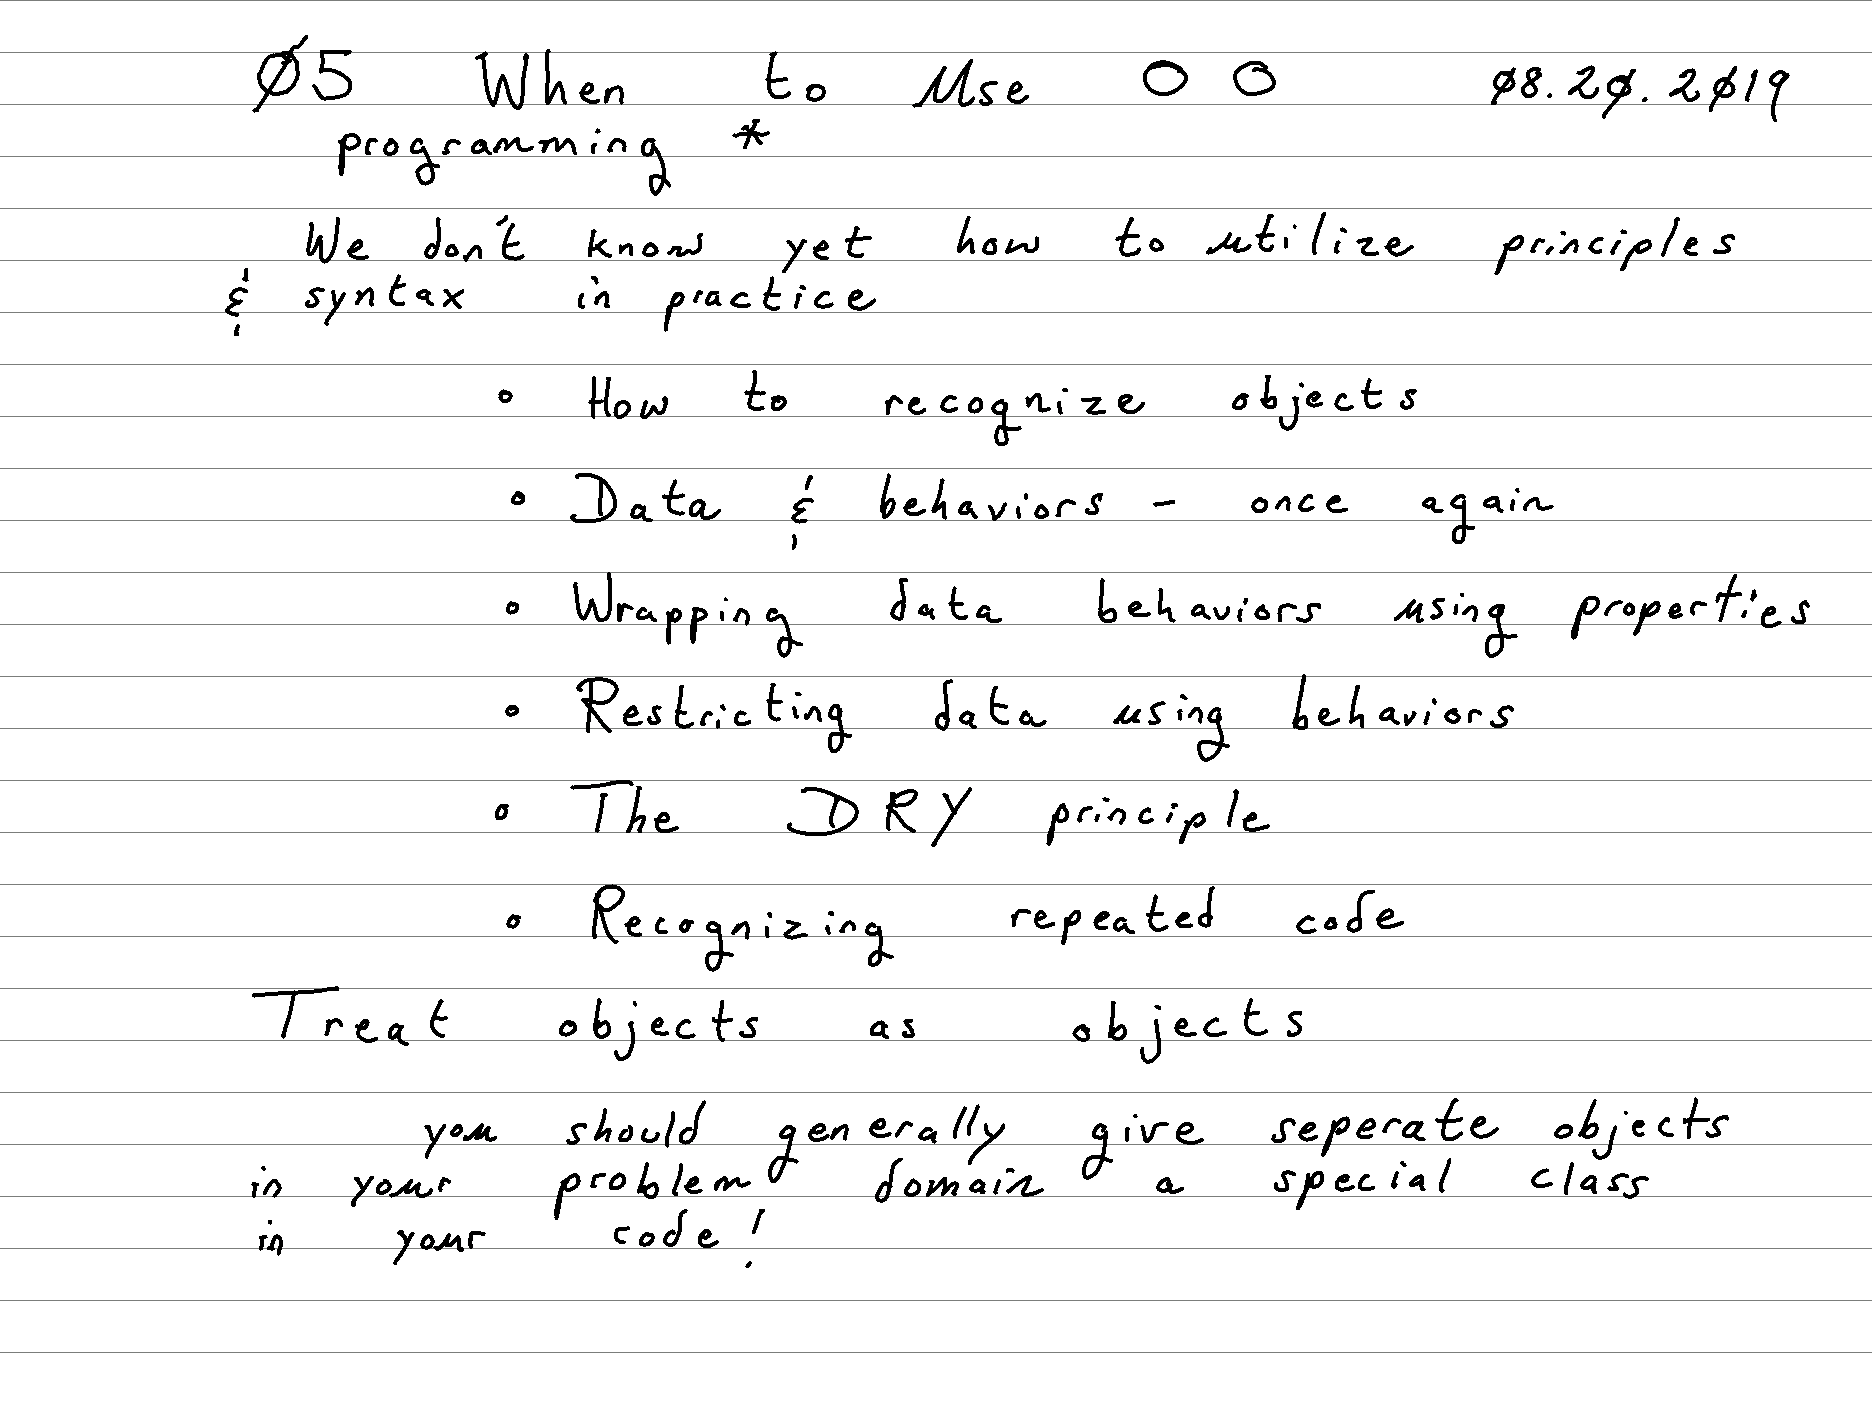 Ø5 When to Use OO Ø8.2Ø.2Ø19
programming *
We don't know yet how to utilize principles
& syntax in practice
• How to recognize objects
• Data & behaviors - once again
• Wrapping data behaviors using properties
• Restricting data using behaviors
• The DRY principle
• Recognizing repeated code
Treat objects as objects
you should generally give seperate objects
in your problem domain a special class
in your code!